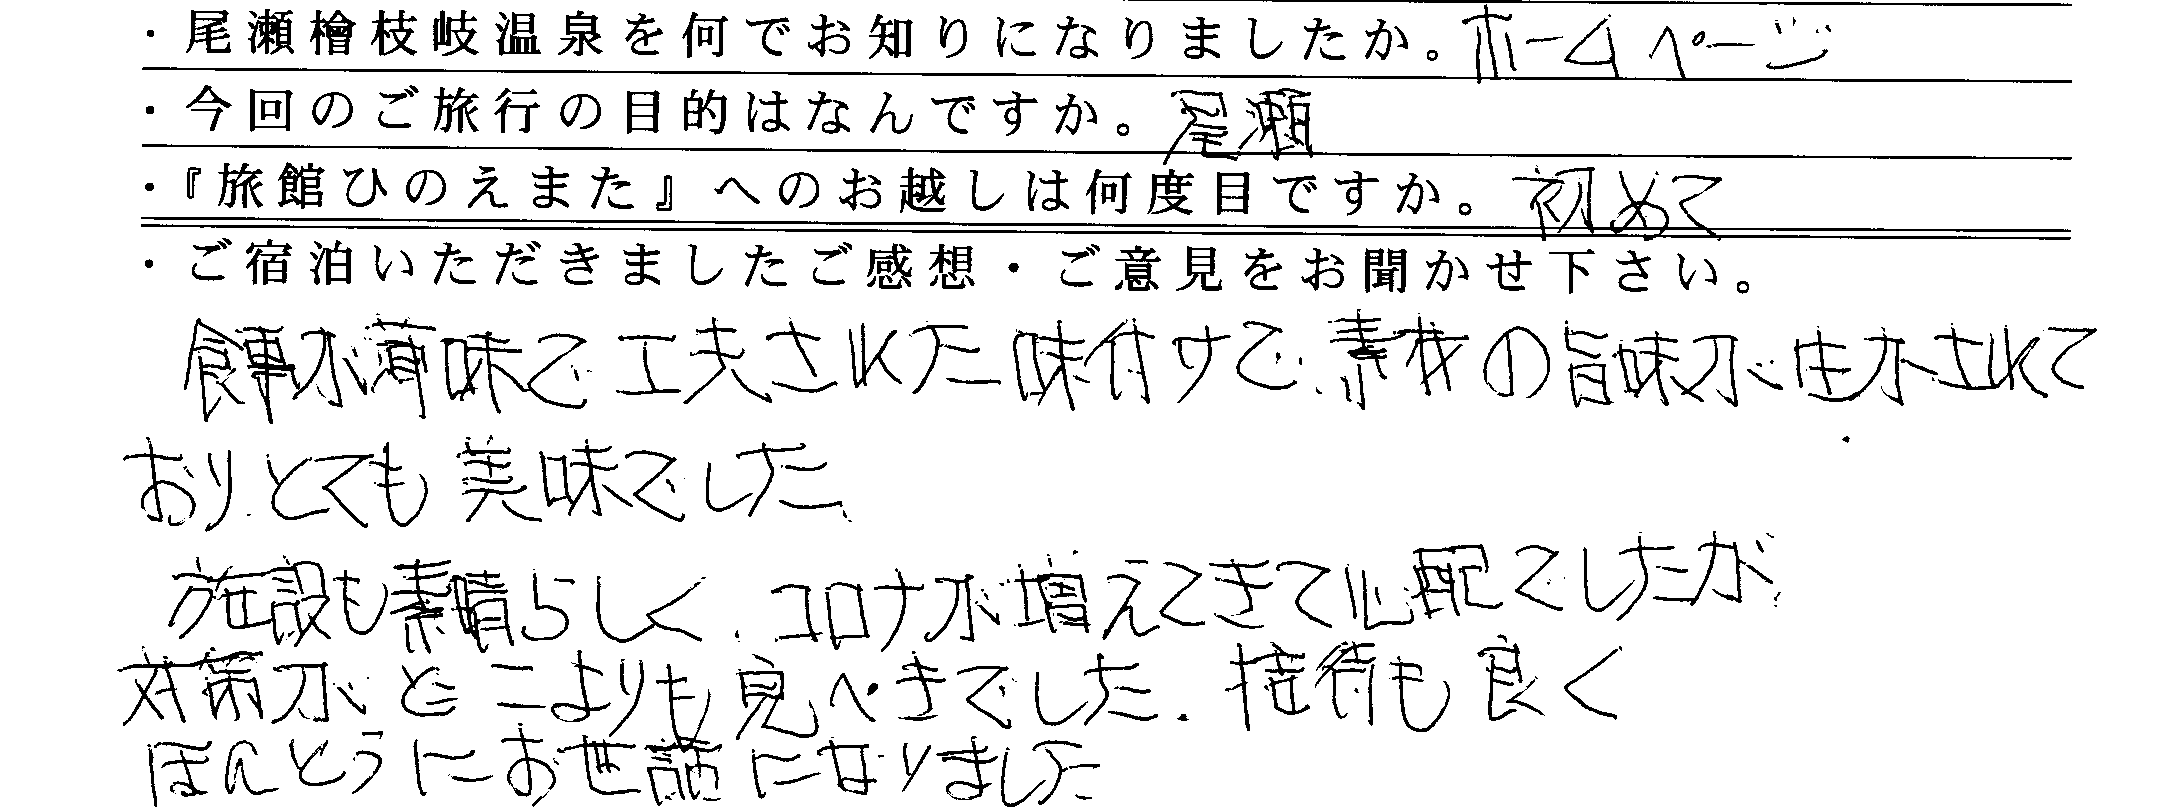 ・尾瀬檜枝岐温泉を何でお知りになりましたか。ホームページ
・今回のご旅行の目的はなんですか。尾瀬
・『旅館ひのえまた』へのお越しは何度目ですか。初めて
・ご宿泊いただきましたご感想・ご意見をお聞かせ下さい。
食事が薄味で工夫された味付けで、素材の旨味が生かされて
おり、とても美味でした。
施設も素晴らしく、コロナが増えてきて心配でしたが、
対策がどこよりも見べきでした。接待も良く
ほんとうにお世話になりました